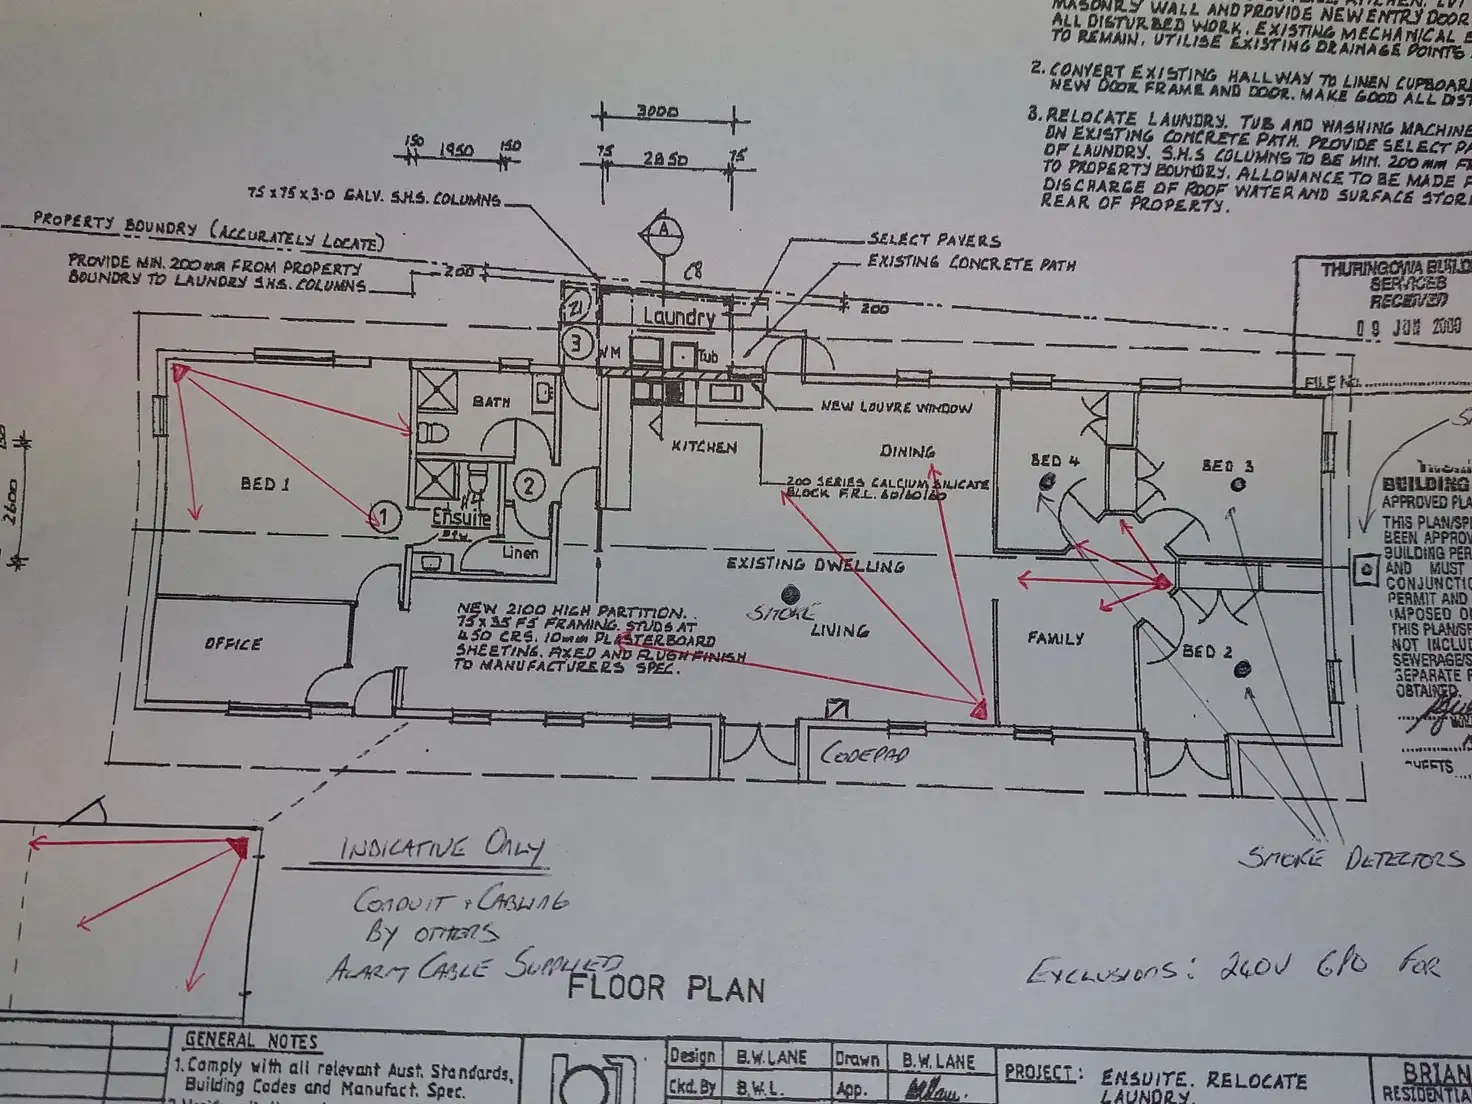 MASONRY WALL AND PROVIDE NEW ENTRY DOOR
ALL DISTURBED WORK. EXISTING MECHANICAL
TO REMAIN. UTILISE EXISTING DRAINAGE POINTS
2. CONVERT EXISTING HALLWAY TO LINEN CUPBOARD
NEW DOOR FRAME AND DOOR. MAKE GOOD ALL
3. RELOCATE LAUNDRY. TUB AND WASHING MACHINE
ON EXISTING CONCRETE PATH. PROVIDE SELECT
OF LAUNDRY. S.H.S COLUMNS TO BE MIN. 200mm
TO PROPERTY BOUNDRY. ALLOWANCE TO BE MADE
DISCHARGE OF ROOF WATER AND SURFACE
REAR OF PROPERTY.
3000
150 1950 150
75 2850 75
75 x 75 x 3.0 GALV. S.H.S. COLUMNS
PROPERTY BOUNDRY (ACCURATELY LOCATE)
PROVIDE MIN. 200mm FROM PROPERTY
BOUNDRY TO LAUNDRY S.H.S. COLUMNS
200
A
C8
SELECT PAVERS
EXISTING CONCRETE PATH
200
THURINGOWA
SERVICES
RECEIVED
09 JUN 2000
FILE No.
21
Laundry
3
WM
Tub
BATH
KITCHEN
NEW LOUVRE WINDOW
DINING
200 SERIES CALCIUM SILICATE
BLOCK F.R.L. 60/60/60
BED 4
BED 3
BED 1
1
2
Ensuite
Linen
2600
EXISTING DWELLING
SMOKE
LIVING
NEW 2100 HIGH PARTITION.
75 x 35 F5 FRAMING. STUDS AT
450 CRS. 10mm PLASTERBOARD
SHEETING. FIXED AND FLUSH FINISH
TO MANUFACTURERS SPEC.
OFFICE
FAMILY
BED 2
BUILDING
APPROVED
THIS
BEEN
BUILDING
AND MUST
PERMIT AND
IMPOSED
THIS
NOT
SEPARATE
OBTAINED.
CODEPAD
SMOKE DETECTORS
INDICATIVE ONLY
CONDUIT + CABLING
BY OTHERS
ALARM CABLE SUPPLIED
FLOOR PLAN
EXCLUSIONS: 240V GPO FOR
GENERAL NOTES
1. Comply with all relevant Aust. Standards,
Building Codes and Manufact. Spec.
Design B.W.LANE Drawn B.W.LANE
Ckd.By B.W.L. App.
PROJECT: ENSUITE. RELOCATE
LAUNDRY.
BRIAN